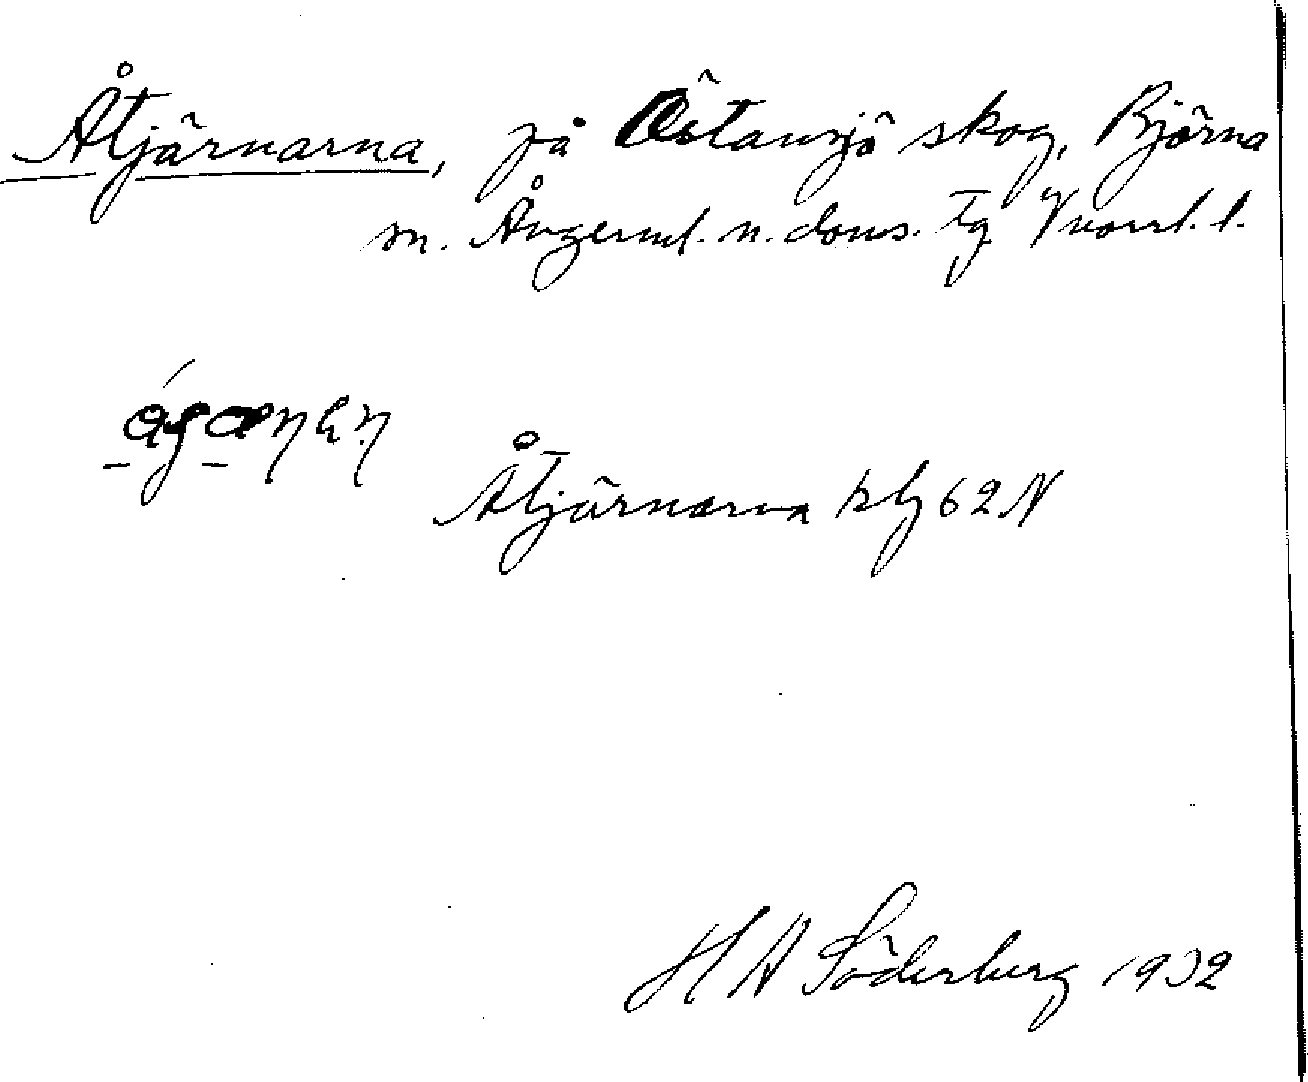 Åtjärnarna, på Östansjö skog, Björna
sn. Ångerml. n. doms. tg Vnorrl. l.
Åtjärnarna 62 N
H A Söderberg 1932